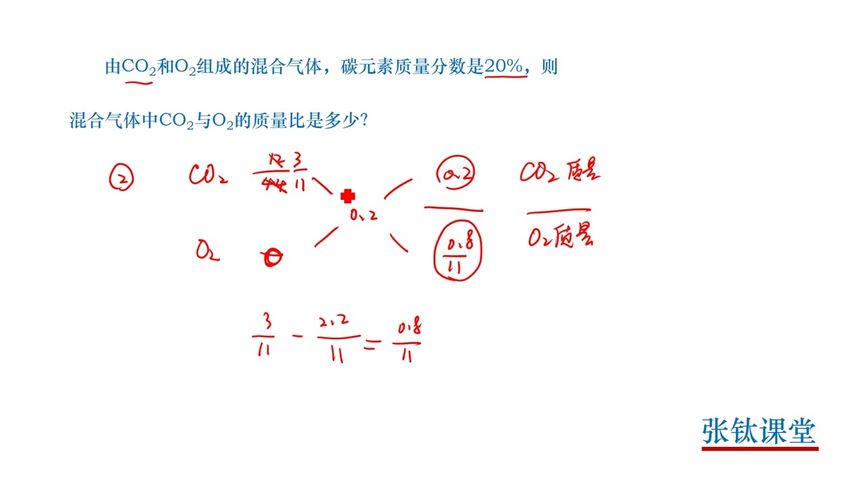 由CO₂和O₂组成的混合气体，碳元素质量分数是20%，则
混合气体中CO₂与O₂的质量比是多少?
② CO₂ 12/44 3/11 0.2 CO₂质量
0.2
O₂ 0 0.8/11 O₂质量
3/11 - 2.2/11 = 0.8/11
张钛课堂